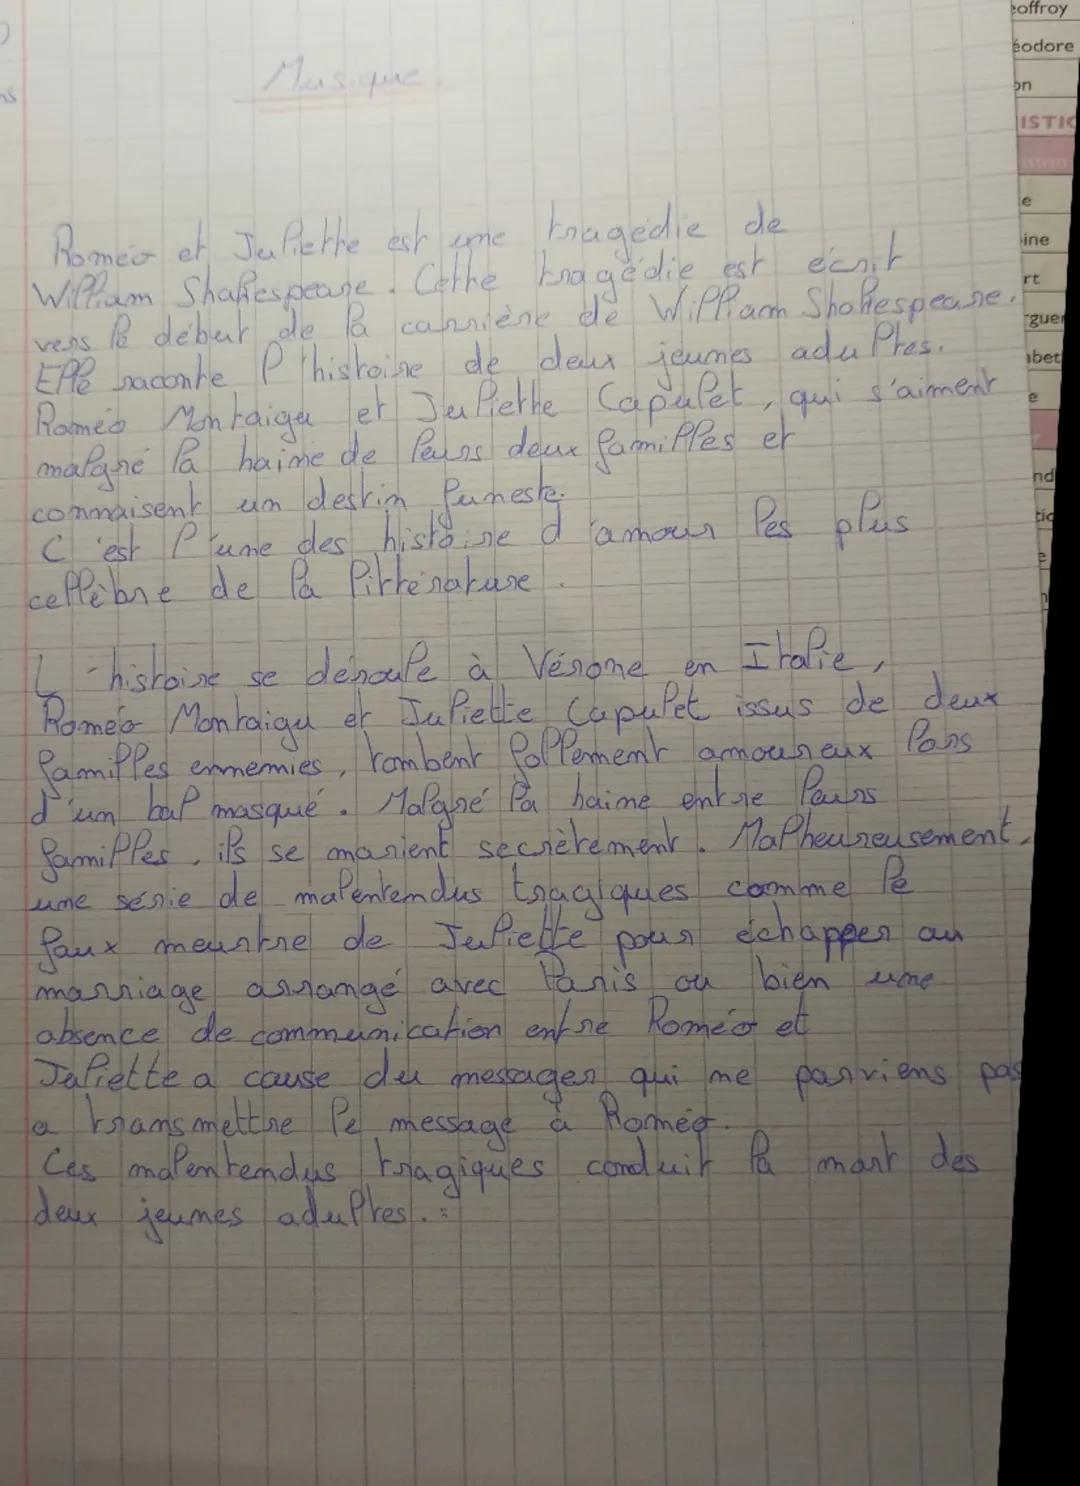 Musique
Roméo et Juliette est une tragédie de
William Shakespeare. Cette tragédie est écrit
vers le début de la carrière de William Shakespeare.
Elle raconte l'histoire de deux jeunes adultes.
Roméo Montaigu et Juliette Capulet, qui s'aiment
malgré la haine de leurs deux familles et
connaisent un destin funeste.
C'est l'une des histoire d'amour les plus
cellèbre de la littérature.
L'histoire se déroule à Vérone en Italie,
Roméo Montaigu et Juliette Capulet issus de deux
familles ennemies, tombent follement amoureux lors
d'un bal masqué. Malgré la haine entre leurs
familles, ils se marient secrètement. Malheureusement,
une série de malentendus tragiques comme le
faux meurtre de Juliette pour échapper au
marriage arrangé avec Paris ou bien une
absence de communication entre Roméo et
Juliette a cause du messager qui ne parviens pas
a transmettre le message à Roméo.
Ces malentendus tragiques conduit la mort des
deux jeunes adultes.
eoffroy
éodore
on
ISTIC
e
ine
rt
guer
abet
e
nd